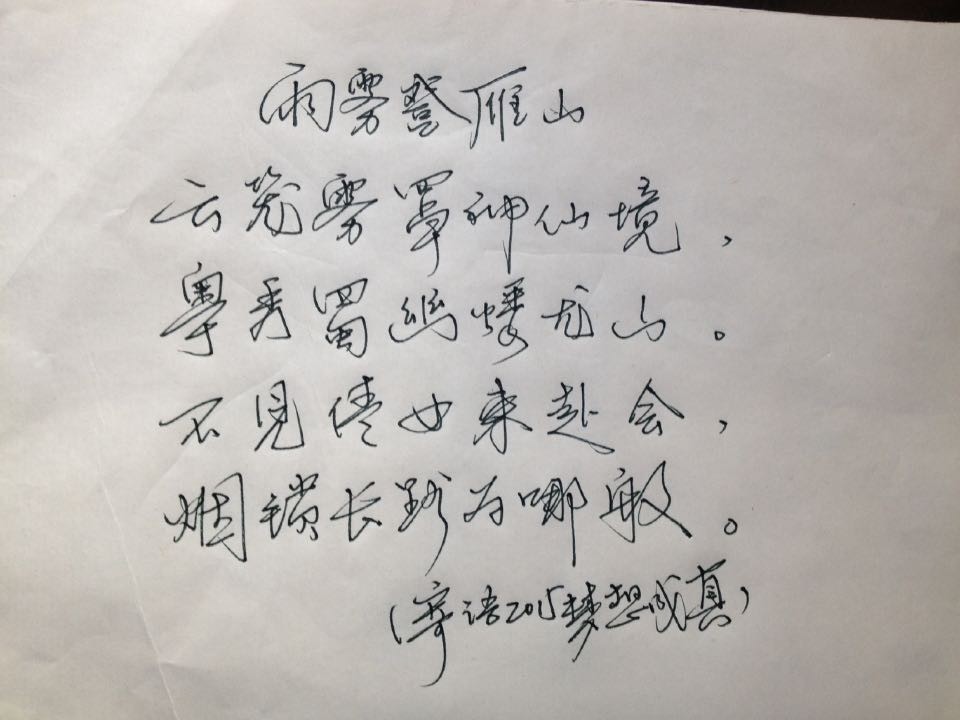 雨雾登雁山
云笼雾罩神仙境，
粤秀蜀幽蟠龙山。
不见倩女来赴会，
烟锁长路为哪般。
（寄语2015梦想成真）